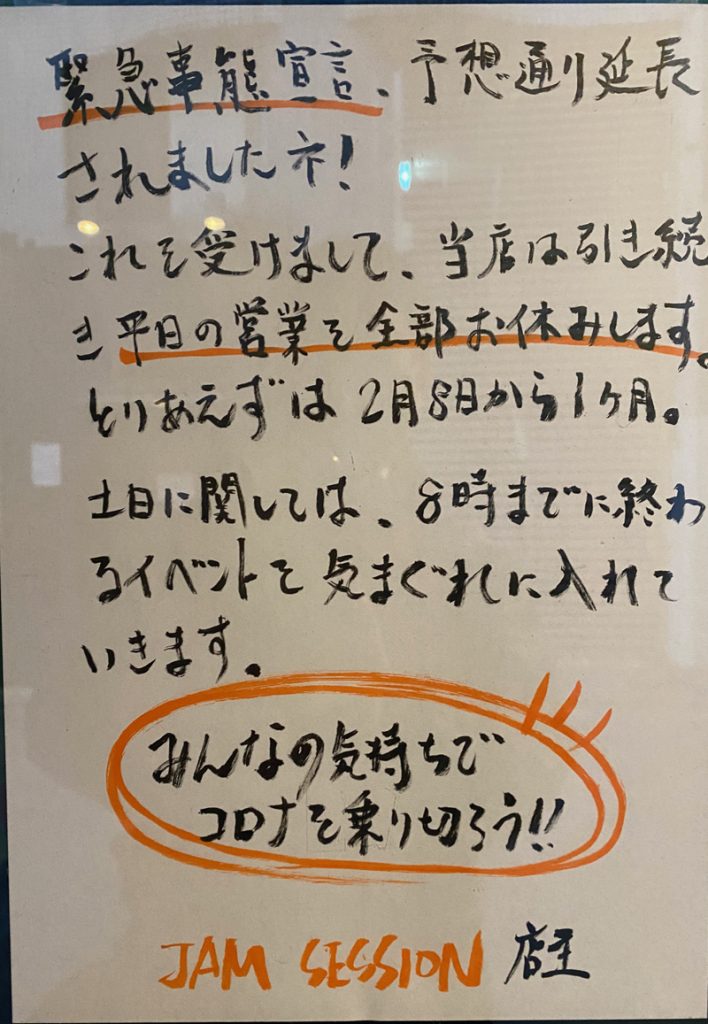 緊急事態宣言、予想通り延長
されましたネ!
これを受けまして、当店は引き続
き平日の営業を全部お休みします。
とりあえずは2月8日から1ヶ月。
土日に関しては、8時までに終わ
るイベントを気まぐれに入れて
いきます。
みんなの気持ちで
コロナを乗り切ろう!!
JAM SESSION 店主